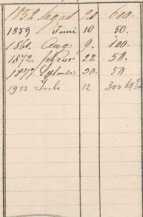 1858 Aug 28 600.
1859 Juni 10 50.
1860. Aug. 9. 100.
1872. Febru 22 50.
1877. Septembr 20. 50.
1912 Juli 12